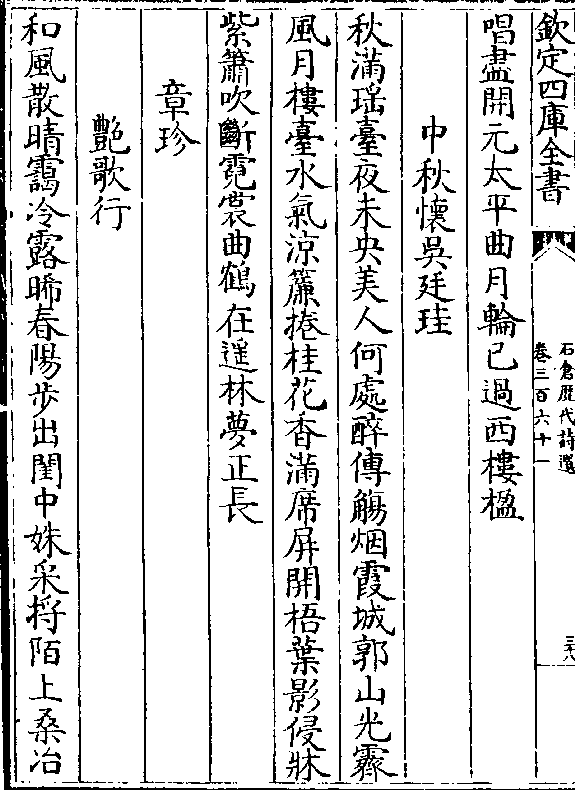 欽定四庫全書
石倉歷代詩選
卷三百六十一
三十八
唱盡開元太平曲月輪已過西樓楹
中秋懷吳廷珪
秋滿瑶臺夜未央美人何處醉傳觴烟霞城郭山光霽
風月樓臺水氣涼簾捲桂花香滿席屏開梧葉影侵牀
紫簫吹斷霓裳曲鶴在遥林夢正長
章珍
艷歌行
和風散晴靄冷露晞春陽步出閨中姝采捋陌上桑冶